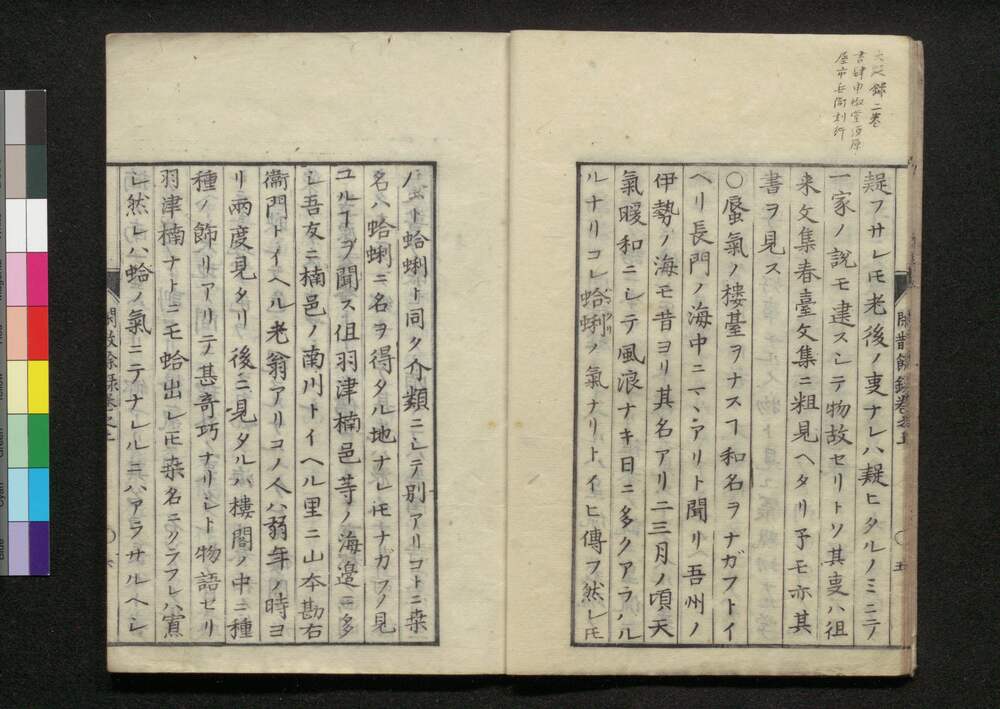 六經録二巻
書肆申椒堂須原
屋市兵衛刻行
疑フサレㇳモ老後ノ㕝ナレハ疑ヒタルノミニテ
一家ノ説モ建スシテ物故セリトソ其㕝ハ徂
来文集春臺文集ニ粗見ヘタリ予モ亦其
書ヲ見ス
〇蜃氣ノ樓臺ヲナスヿ和名ヲナガフトイ
ヘリ長門ノ海中ニマヽアリト聞リ吾州ノ
伊勢ノ海モ昔ヨリ其名アリ二三月ノ頃天
氣暖和ニシテ風浪ナキ日ニ多クアラハル
ルナリコレ蛤蜊ノ氣ナリトイヒ傳フ然レㇳモ
閑散餘録巻之上
五
ノ虫ト蛤蜊ト同ク介類ニシテ別アリコトニ桒
名ハ蛤蜊ニ名ヲ得タル地ナレㇳモナガフノ見
ユルヿヲ聞ス但羽津楠邑等ノ海邉ニ多
シ吾友ニ楠邑ノ南川トイヘル里ニ山本勘右
衞門トイヘル老翁アリコノ人ハ弱年ノ時ヨ
リ兩度見タリ後ニ見タルハ樓閣ノ中ニ種
種ノ飾リアリテ甚奇巧ナリシト物語セリ
羽津楠ナトニモ蛤出レㇳモ桒名ニクラフレハ寡
シ然レハ蛤ノ氣ニテナレルニハアラサルヘシ
閑散餘録巻之上
六